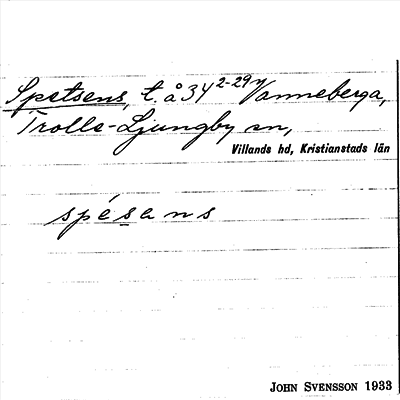 Spetsens, t. å 34 2-29 Vanneberga,
Trolle-Ljungby sn,
Villands hd, Kristianstads län
spésans
JOHN SVENSSON 1933